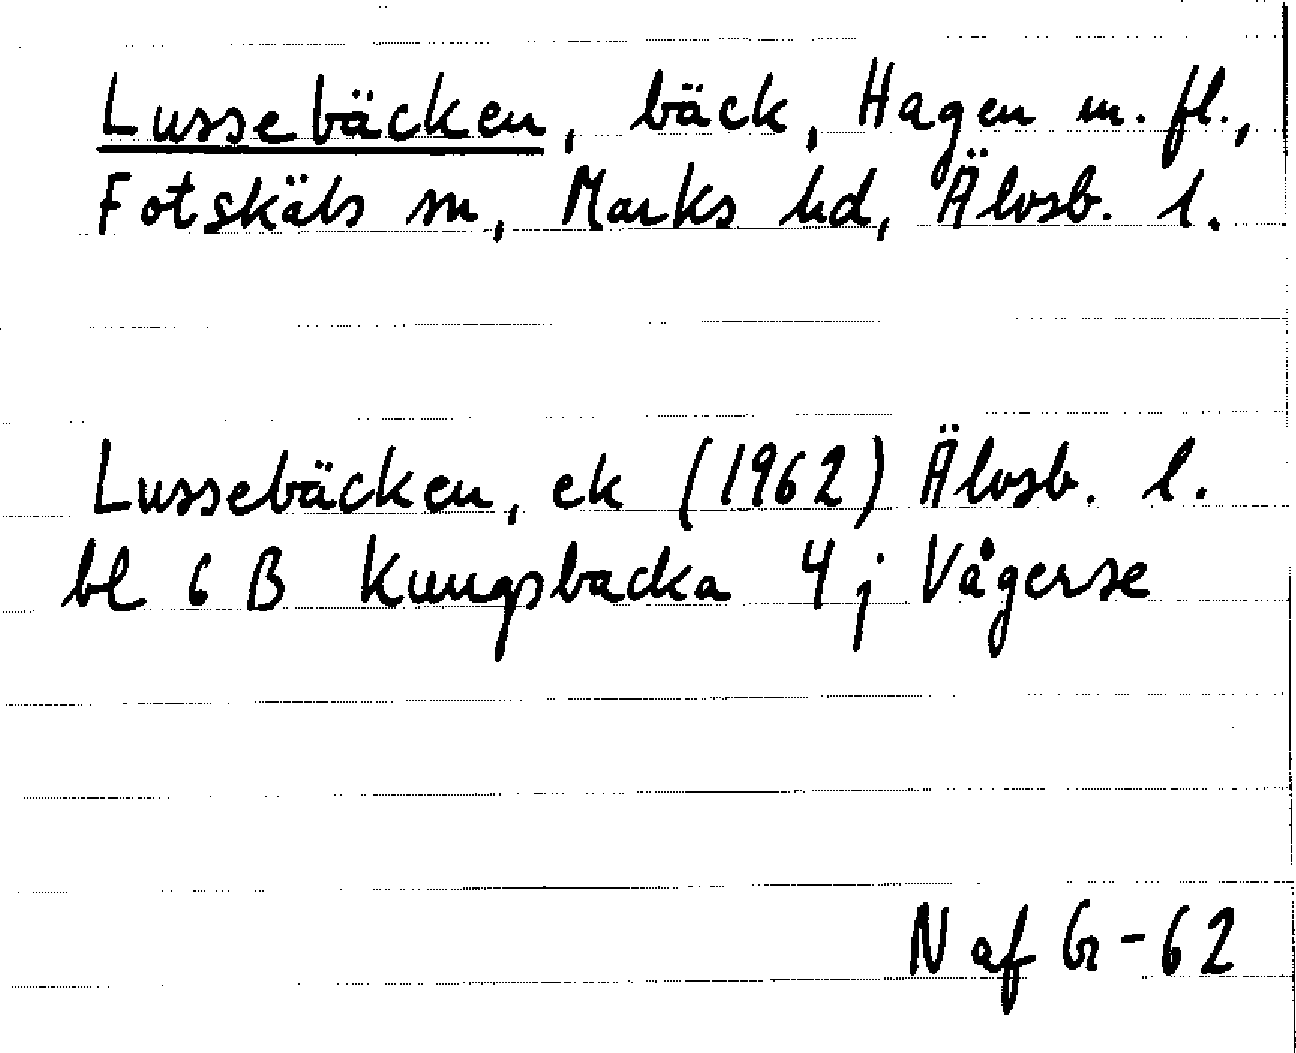 Lussebäcken, bäck, Hagen m. fl.,
Fotskäls sn, Marks hd, Älvsb. l.
Lussebäcken, ek (1962) Älvsb. l.
bl 6 B Kungsbacka 4 j Vågerse
N af G-62